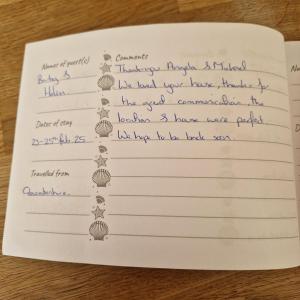 Names of guest(s)
&
Helen
Dates of stay
23-25th Feb 25
Travelled from
Comments
Thankyou Angela & Michael
We loved your house, thanks for
the great communication, the
location & house were perfect
We hope to be back soon.
N